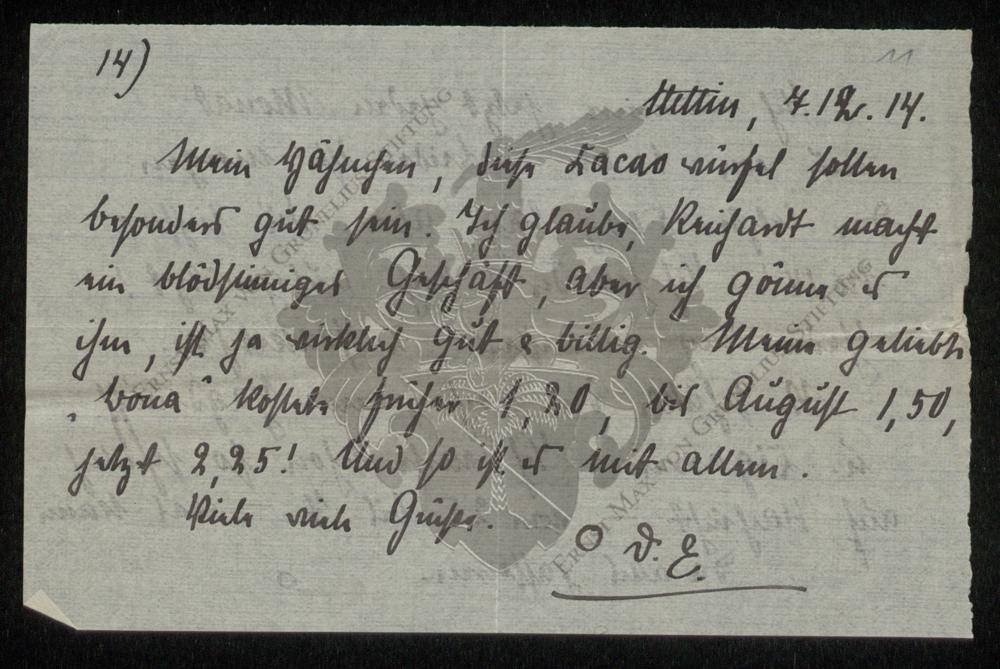 14)
11
Stettin, 7.12.14.
Mein Hähnchen, diese Cacaowürfel sollen
besonders gut sein. Ich glaube, Reichardt macht
ein blödsinniges Geschäft, aber ich gönne es
ihm, ist ja wirklich gut & billig. Meine geliebte
"bona" kostete früher 1,20, bis August 1,50,
jetzt 2,25! Und so ist es mit allem.
Viele viele Grüsse.
O D. E.
ERNST MAX VON GRUNELIUS STIFTUNG
ERNST MAX VON GRUNELIUS STIFTUNG